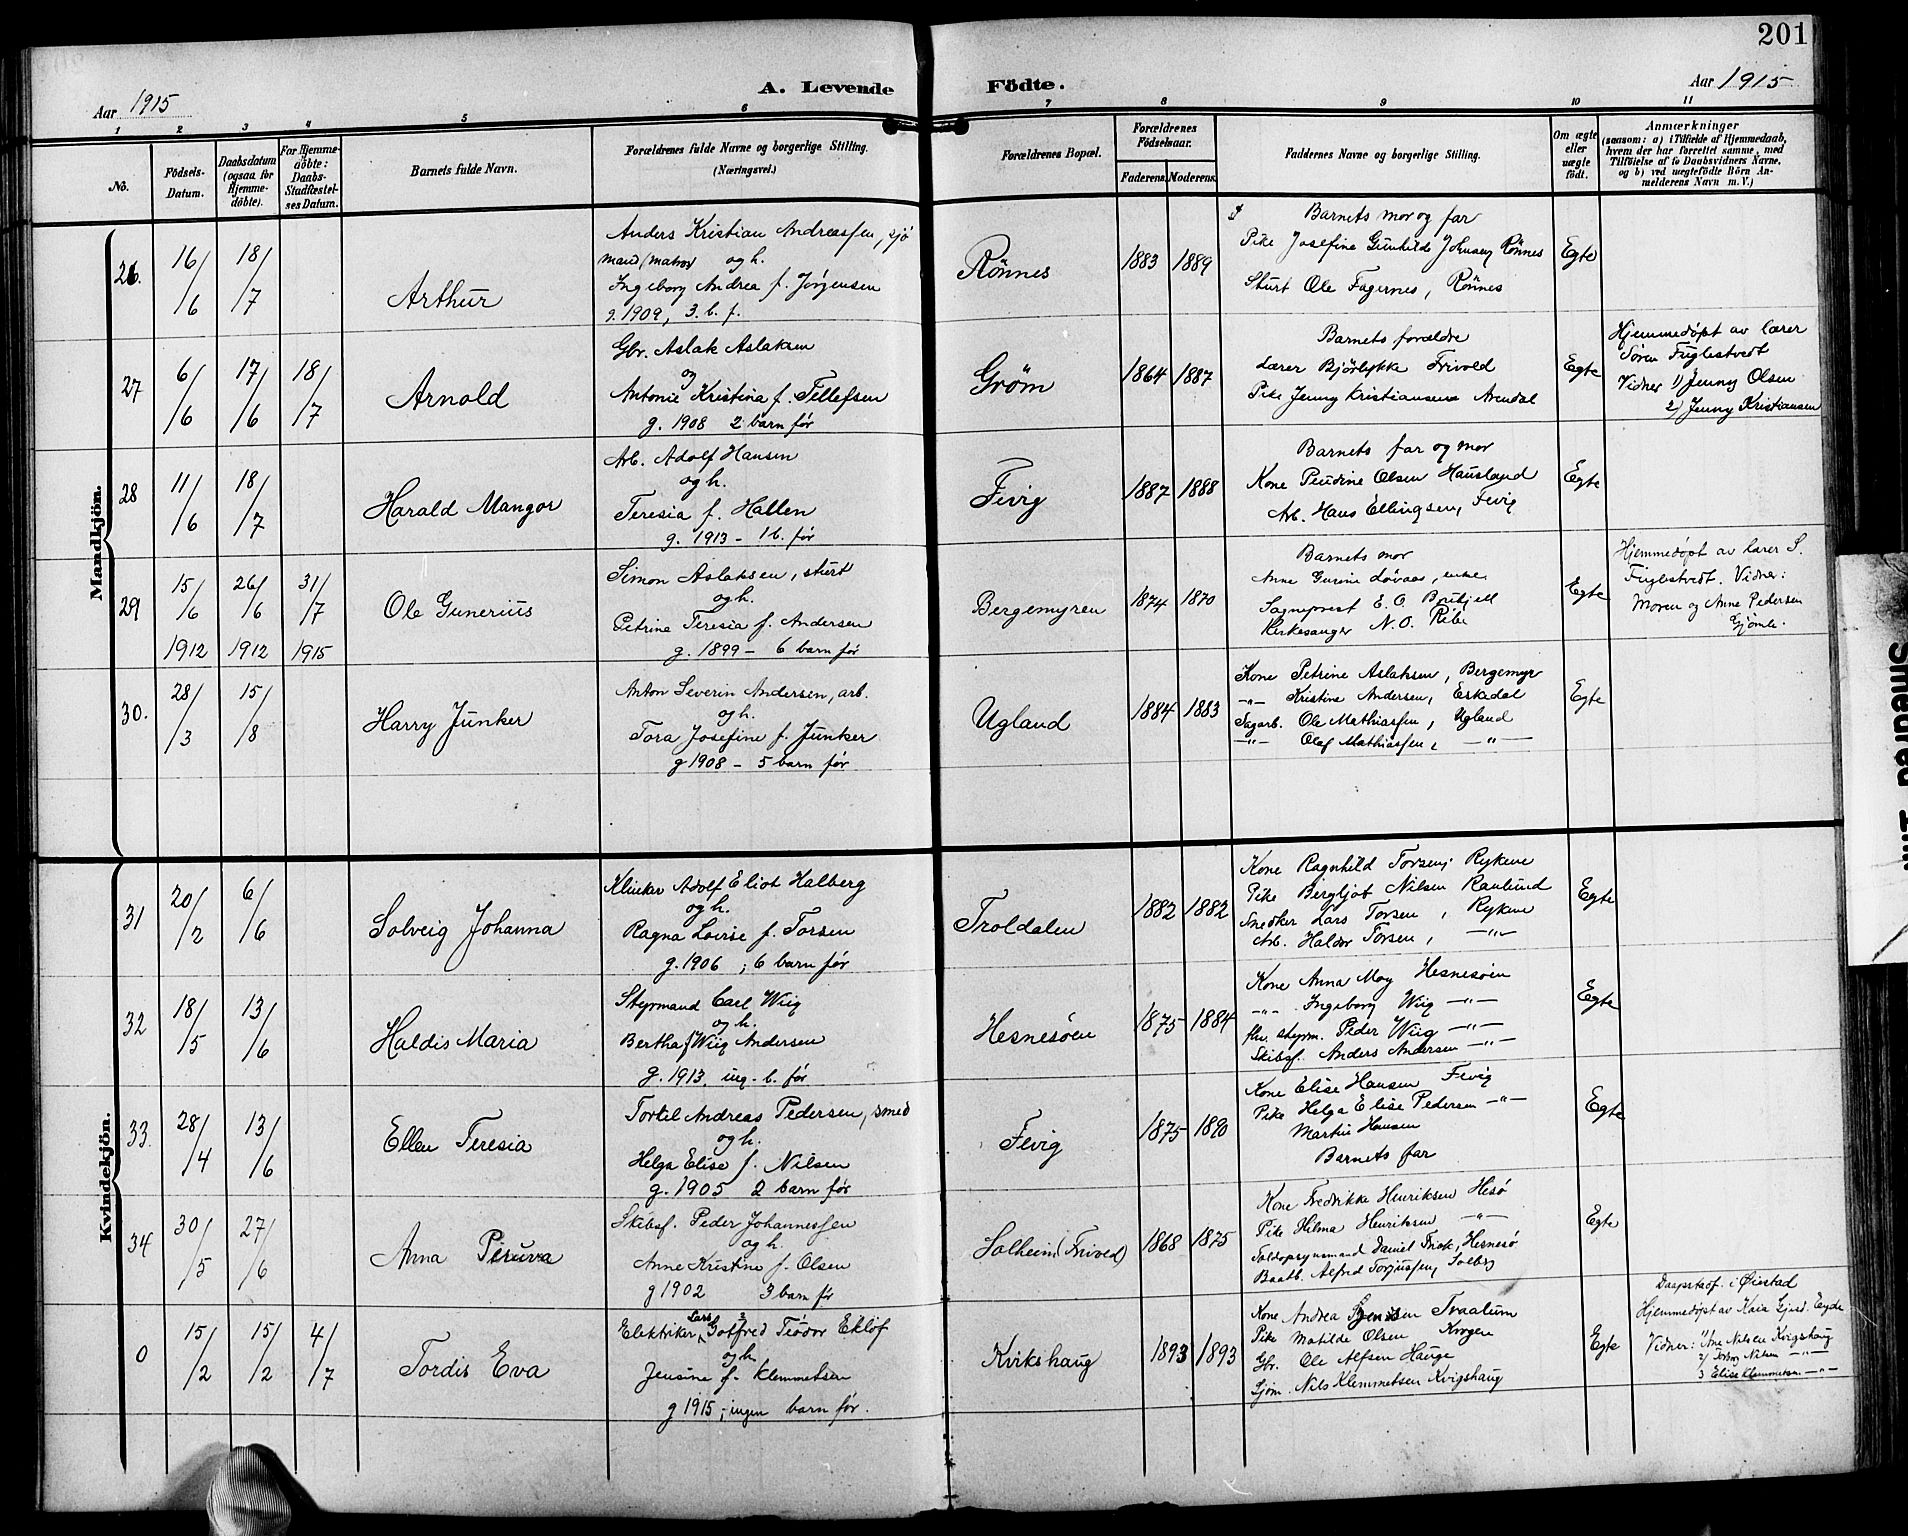 201
Aar 1915
A. Levende Födte.
Aar 1915
1 2 3 4 5 6 7 8 9 10 11
No.
Födsels-
Datum.
Daabsdatum
(ogsaa for
Hjemme-
döbte).
For Hjemme-
döbte:
Daabs-
Stadfæstel-
ses Datum.
Barnets fulde Navn.
Forældrenes fulde Navne og borgerlige Stilling.
(Næringsvei.)
Forældrenes Bopæl.
Forældrenes
Födselsaar.
Faderens. Moderens.
Faddernes Navne og borgerlige Stilling.
Om ægte
eller
uægte
födt.
Anmærkninger
(saasom: a) i Tilfælde af Hjemmedaab,
hvem der har forrettet samme, med
Tilföielse af to Daabsvidners Navne,
og b) ved uægtefödte Börn An-
melderens Navn m. V.)
Mandkjön.
26. 16/6 18/7
Arthur
Anders Kristian Andreassen, sjö
mand (matros) og h.
Ingeborg Andrea f. Jørgensen
g. 1909, 3. b. f.
Rönnes
1883 1889
Barnets mor og far
Pike Josefine Gunhilde Johnsen Rönnes
Sturt Ole Fagernes, Rönnes
Egte
27 6/6 17/6 18/7
Arnold
Gbr. Aslak Aslaksen
og
Antonie Kristina f. Tellefsen
g. 1908 2 barn før
Grøm
1864 1887
Barnets forældre
Lærer Bjørlykke Frivold
Pike Jenny Kristiansen Arendal
Egte
Hjemmedøpt av lærer
Søren Fuglestvedt
Vidner 1) Jenny Olsen
2) Jenny Kristiansen
28 11/6 18/7
Harald Mangor
Arb. Adolf Hansen
og h.
Teresia f. Hallen
g. 1913 - 1 b. før
Fevig
1887 1888
Barnets far og mor
Kone Olsen Hausland
Arb. Hans Ellingsen, Fevig
Egte
29 15/6 1912 26/6 1912 31/7 1915
Ole Gunerius
Simon Aslaksen, sturt
og h.
Petrine Teresia f. Andersen
g. 1899 - 6 barn før
Bergemyren
1874 1870
Barnets mor
Anne Gurine Løvaas, enke
Sogneprest E. O.
Kirkesanger N. O. Ribe
Egte
Hjemmedøpt av lærer S.
Fuglestvedt. Vidner:
Moren og Anne Pedersen
Gjømle.
30. 28/3 15/8
Harry Junker
Anton Severin Andersen, arb.
og h.
Tora Josefine f. Junker
g 1908 - 5 barn før
Ugland
1884 1883
Kone Petrine Aslaksen, Bergemyr
-"- Kristine Andersen, Eskedal
Sagarb. Ole Mathiassen, Ugland
-"- Olaf Mathiassen, -"-
Egte
Kvindekjön.
31 20/2 6/6
Solveig Johanna
Klinker Adolf Eliot Halberg
og h.
Ragna Lovise f. Torsen
g. 1906 ; 6 barn før
Troldalen
1882 1882
Kone Ragnhild Torsen, Rykene
Pike Bergljot Nilsen Raulund
Snedker Lars Torsen, Rykene
Arb. Haldor Torsen, -"-
Egte
32 18/5 13/6
Haldis Maria
Styrmand Carl Wiig
og h.
Bertha f. Wiig Andersen
g. 1913, ing. b. før
Hesnesøen
1875 1884
Kone Anna May Hesnesøen
-"- Ingeborg Wiig -"-
fhv. styrm. Peder Wiig -"-
Skibsf. Anders Andersen -"-
Egte
33. 28/4 13/6
Ellen Teresia
Tortil Andreas Pedersen, smed
og h.
Helga Elise f. Nilsen
g. 1905 2 barn før
Fevig
1875 1890
Kone Elise Hansen Fevig
Pike Helga Elise Pedersen -"-
Martin Hansen
Barnets far
Egte
34 30/5 27/6
Anna Petruva
Skibsf. Peder Johannessen
og h.
Anne Kristine f. Olsen
g 1902 3 barn før
Solheim (Frivold)
1868 1875
Kone Fredrikke Henriksen Hesø
Pike Hilma Henriksen -"-
Toldopsynsmand Daniel Hesnesø
Baatb. Alfred Torjussen, Solberg
Egte
0 15/2 15/2 4/7
Tordis Eva
Elektriker Lars Gotfred Teodor Eklöf
og h.
Jensine f. Klemmetsen
g 1915; ingen barn før.
Kvikshaug
1893 1893
Kone Andrea Jensen Traalum
Pike Matilde Olsen Krogen
Gbr. Ole Alfsen Hauge
Sjøm. Nils Klemmetsen Kvigshaug
Egte
Daapstadf. i Øiestad
Hjemmedøpt av Kaia Egde
Vidner: 1) Ane Nilsen Kvigshaug
2) Nilsen -"-
3 Elise Klemmetsen -"-